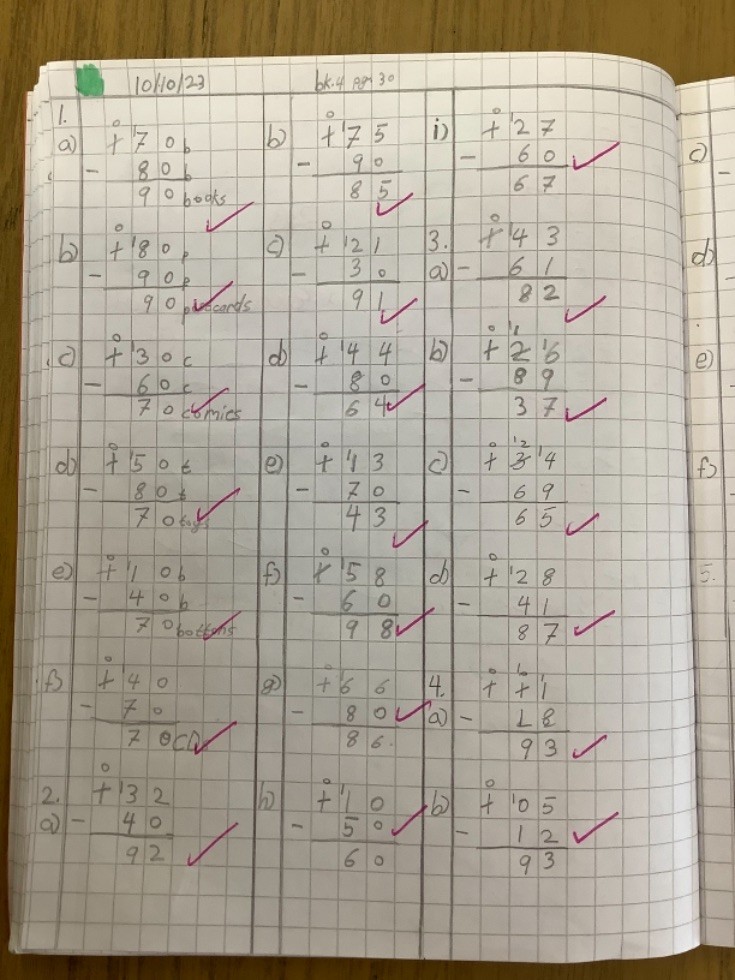 10/10/23 bk.4 pg 30
1.
0
a) 1 ¹7 0 b
- 8 0 b
9 0 books
0
b) 1 ¹8 0 p
- 9 0 p
9 0 postcards
0
c) 1 ¹3 0 c
- 6 0 c
7 0 comics
0
d) 1 ¹5 0 t
- 8 0 t
7 0 toys
0
e) 1 ¹1 0 b
- 4 0 b
7 0 buttons
0
f) 1 ¹4 0
- 7 0
7 0 CD
0
2. 1 ¹3 2
a) - 4 0
9 2
0
b) 1 ¹7 5
- 9 0
8 5
0
c) 1 ¹2 1
- 3 0
9 1
0
d) 1 ¹4 4
- 8 0
6 4
0
e) 1 ¹1 3
- 7 0
4 3
0
f) 1 ¹5 8
- 6 0
9 8
0
g) 1 ¹6 6
- 8 0
8 6.
0
h) 1 ¹1 0
- 5 0
6 0
0
i) 1 ¹2 7
- 6 0
6 7
0
3. 1 ¹4 3
a) - 6 1
8 2
0 ¹1
b) 1 2 ¹6
- 8 9
3 7
0 ¹2
c) 1 3 ¹4
- 6 9
6 5
0
d) 1 ¹2 8
- 4 1
8 7
0 ¹0
4. 1 1 ¹1
a) - 1 8
9 3
0
b) 1 ¹0 5
- 1 2
9 3
c)
-
d)
e)
f)
5.